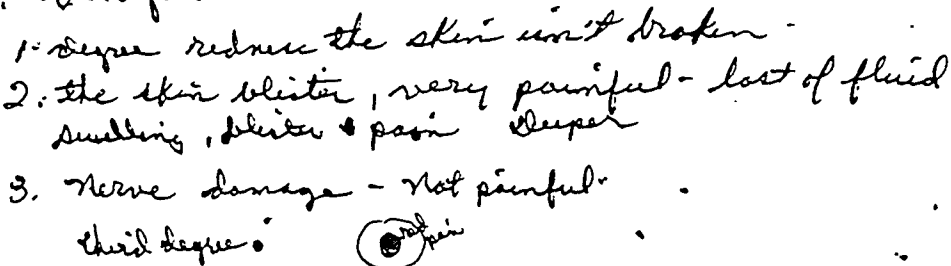 1- degree redness the skin isn't broken -
2. the skin blister, very painful - lost of fluid
swelling, blister & pain Deeper
3. Nerve damage - Not painful.
third degree. red pain